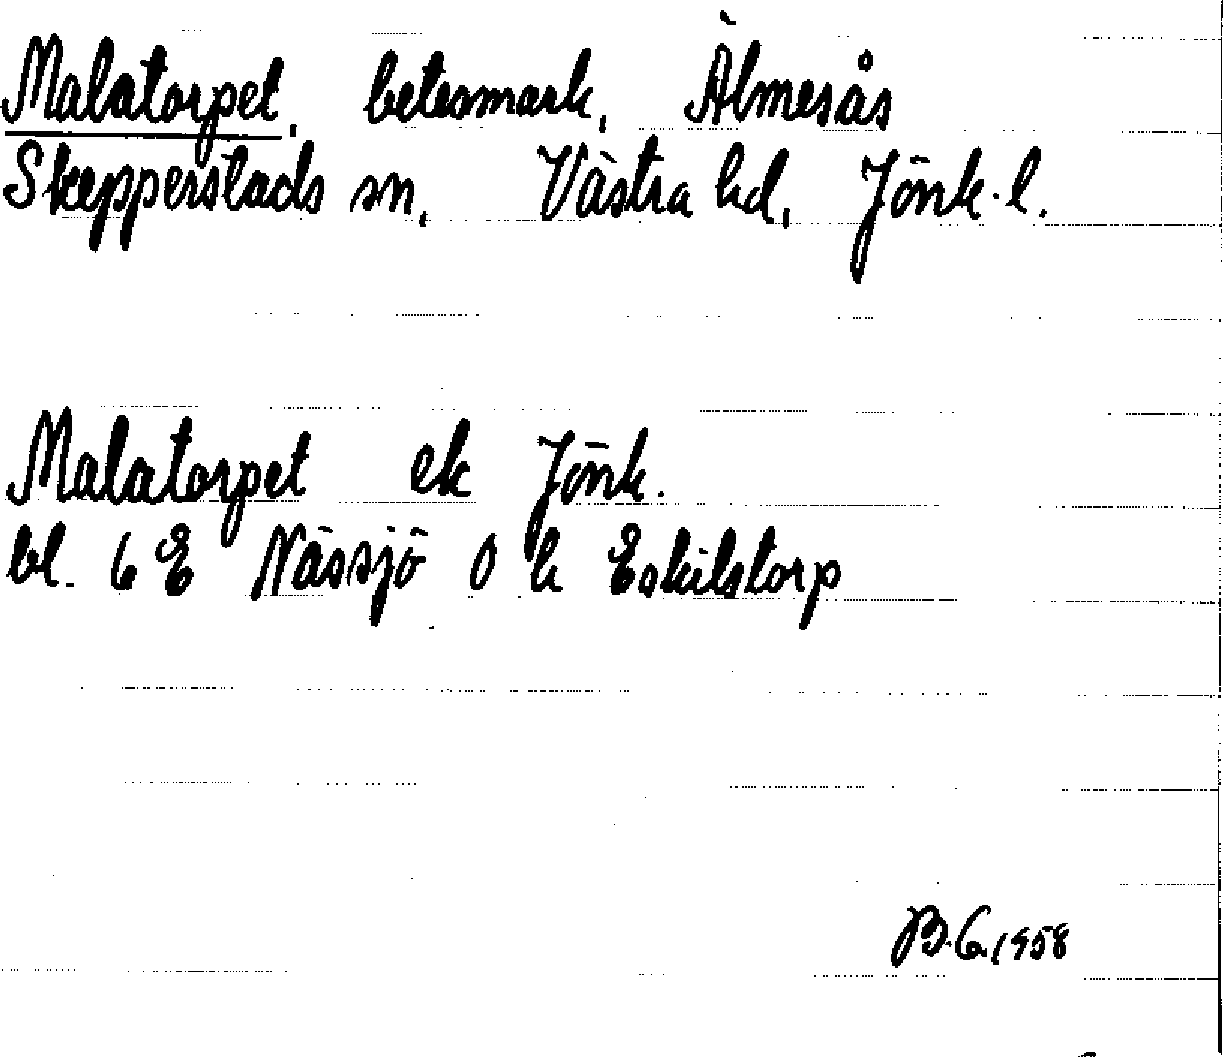 Malatorpet, betesmark, Älmesås
Skepperstads sn, Västra hd, Jönk. l.
Malatorpet ek Jönk.
bl. 6 E Nässjö O k Eskilstorp
B.G. 1958